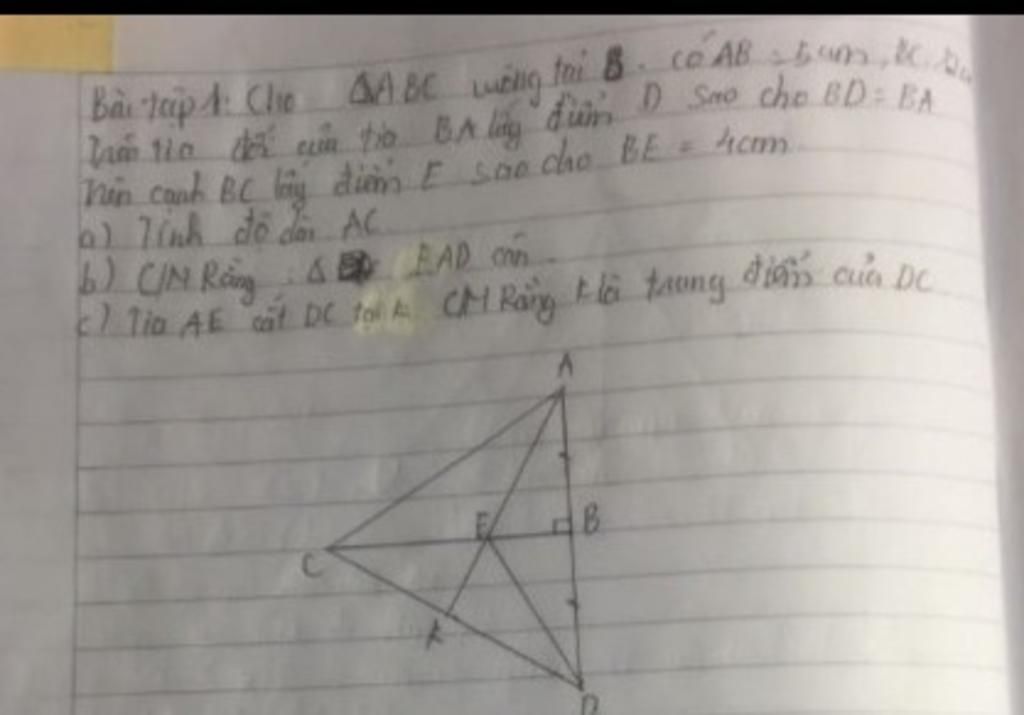 Bài tập 1: Cho ΔABC vuông tại B. có AB = 5cm, BC
Trên tia đối của tia BA lấy điểm D sao cho BD = BA
Trên cạnh BC lấy điểm E sao cho BE = 4cm
a) Tính độ dài AC
b) C/M Rằng: Δ EAD cân.
c) Tia AE cắt DC tại K CM Rằng K là trung điểm của DC
A
E
B
C
K
D